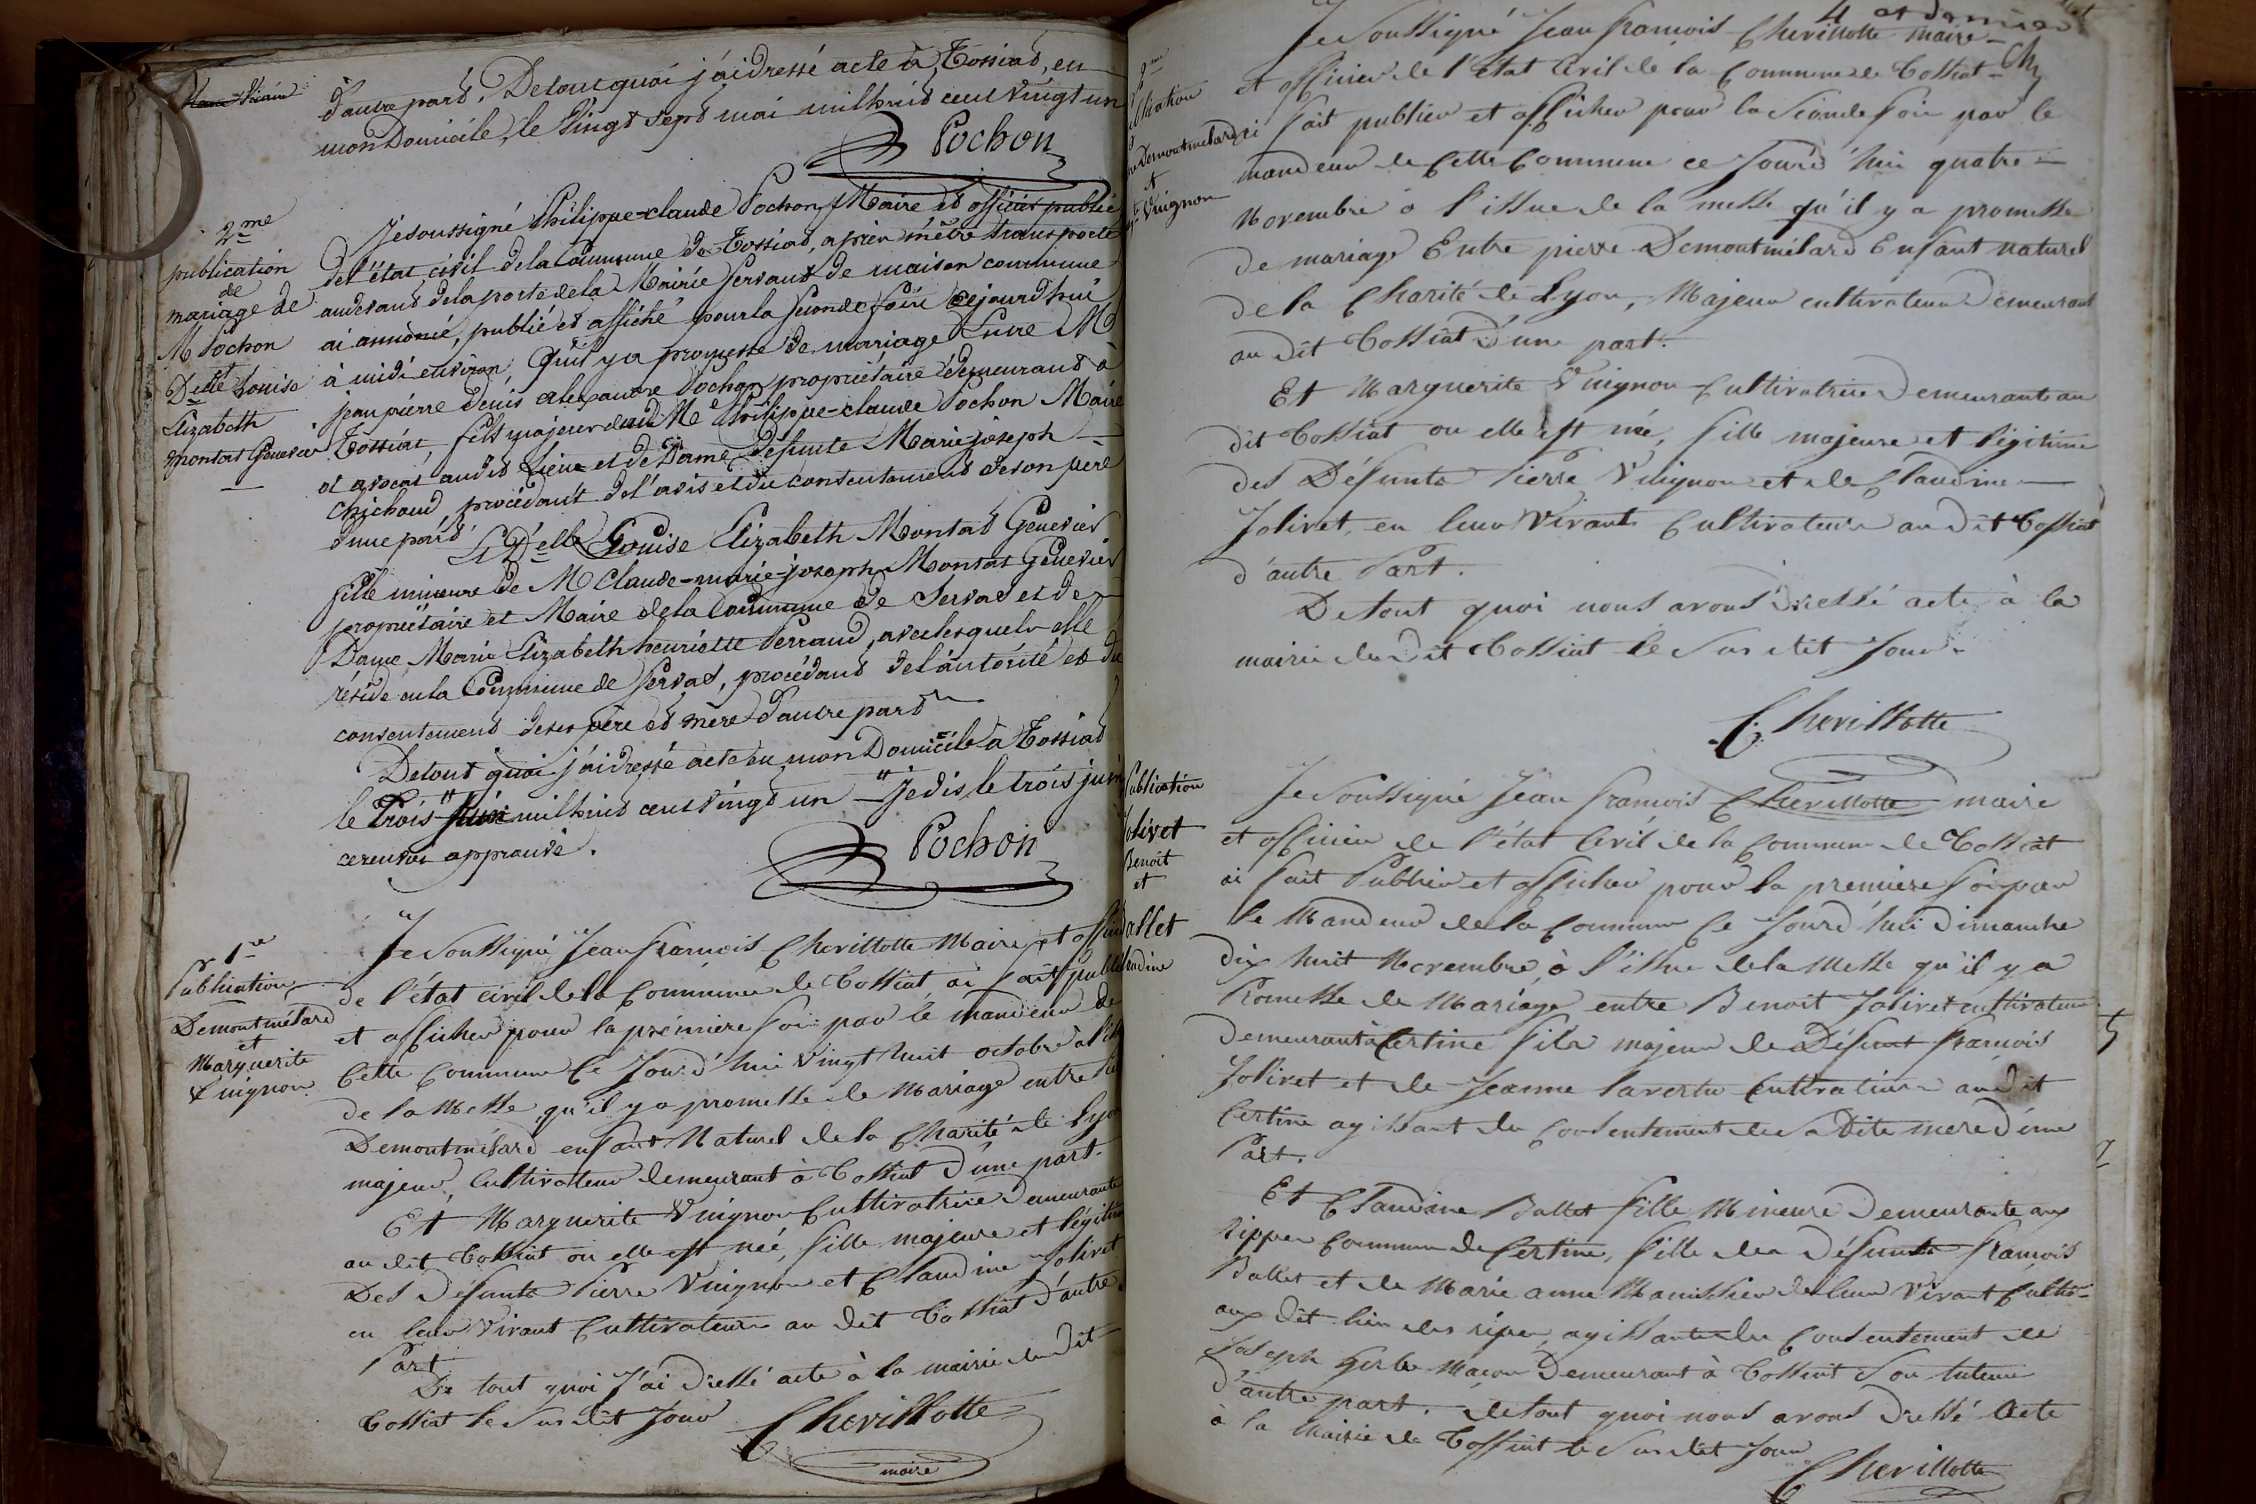 d'autre pard. De tout quoi j'ai dressé acte à Tossiad, en
mon Domicile, le vingt sept mai mil huid cent vingt un
Pochon
2me
publication
de
mariage de
M Pochon
et
Delle Louise
Elizabeth
montat Genevier
Je soussigné Philippe-claude Pochon Maire et officier public
de l'état civil de la Commune de Tossiad, après m'être transporté
audevant de la porte de la Mairie servant de maison commune
ai annoncé, publié et affiché pour la seconde foix cejourd'hui
à midi environ, Qu'il y a promesse de mariage Entre M
jean pierre denis alexandre Pochon propriétaire demeurant à
Tossiat, fils majeur dud. Me Philippe-claude Pochon Maire
et avocat audit Lieu et de Dame défunte Marie joseph
Chichaud, procédant de l'avis et du consentement de son père
d'une pard
Et Delle Louise Elizabeth Montad Genevier
fille mineure de M Claude-marie-joseph Montat Genevier
propriétaire et Maire de la Commune de Servas et de
Dame Marie Elizabeth henriette Perraud, avec lesquels elle
réside en la Commune de Servas, procédant de l'autorité et du
consentement de ses père et mère d'autre pard
De tout quoi j'ai dressé acte en mon Domicile à Tossiad
le Trois juin mil huid cent vingt un je dis le trois juin
ce renvoi approuvé.
Pochon
1re
Publication
Demontmélard
et
Marguerite
Vuignon
Je soussigné Jean françois Chevillotte Maire et officier
de l'état civil de la Commune de Tossiat ai fait publier
et afficher pour la première foi par le mandeur de
Cette Commune Ce Jourd'hui Vingt huit octobre à l'issue
de la Messe qu'il y a promesse de Mariage entre
Demontmélard enfant Naturel de la Charité de Lyon
majeur, Cultivateur demeurant à Tossiat d'une part.
Et Marguerite Vuignon Cultivatrice Demeurante
au dit Tossiat ou elle est née, fille majeure et légitime
Des défunts Pierre Vuignon et Claudine Jolivet
en leur Vivant Cultivateurs au dit Tossiat d'autre
Part
De tout quoi J'ai Dressé acte à la mairie du dit
Tossiat le Sus dit Jour
Chevillotte
maire
4 et dernier
Ch
Demontmelard
et
Vuignon
Je Soussigné Jean françois Chevillotte maire
et officier de l'état Civil de la Commune de Tossiat
ai fait publier et afficher pour la Seconde foi par le
mandeur de Cette Commune ce Jourd'hui quatre
Novembre à l'issue de la messe qu'il y a promesse
de mariage Entre pierre Demontmélard Enfant naturel
de la Charité de Lyon, Majeur cultivateur Demeurant
au dit Tossiat d'une part.
Et Marguerite Vuignon Cultivatrice Demeurante au
dit Tossiat ou elle est née, fille majeure et légitime
des Défunts Pierre Vuignon et de Claudine
Jolivet, en leur Vivant Cultivateurs au dit Tossiat
d'autre Part.
De tout quoi nous avons Dressé acte à la
mairie du Dit Tossiat le Sus dit Jour.
Chevillotte
Publication
Jolivet
Benoit
et
Ballet
Claudine
Je Soussigné Jean françois Chevillotte maire
et officier de l'état Civil de la Commune de Tossiat
ai fait Publier et afficher pour la première foi par
le Mandeur de la Commune Ce Jourd'hui Dimanche
Dix huit Novembre, à l'issue de la Messe qu'il y a
Promesse de Mariage entre Benoit Jolivet cultivateur
demeurant à Certine fils majeur de Défunt françois
Jolivet et de Jeanne Pavertu Cultivateurs audit
Certine agissant du Consentement de Sa Dite mere d'une
Part.
Et Claudine Ballet fille Mineure Demeurante aux
rippes Commune de Certine, fille des Défunts françois
Ballet et de Marie anne Manissier de leur Vivant Cultiv.
aux dit lieu des ripes, agissante du Consentement de
Joseph maçon Demeurant à Tossiat Son tuteur
d'autre part. de tout quoi nous avons Dressé Acte
à la Mairie de Tossiat le Sus dit Jour
Chevillotte